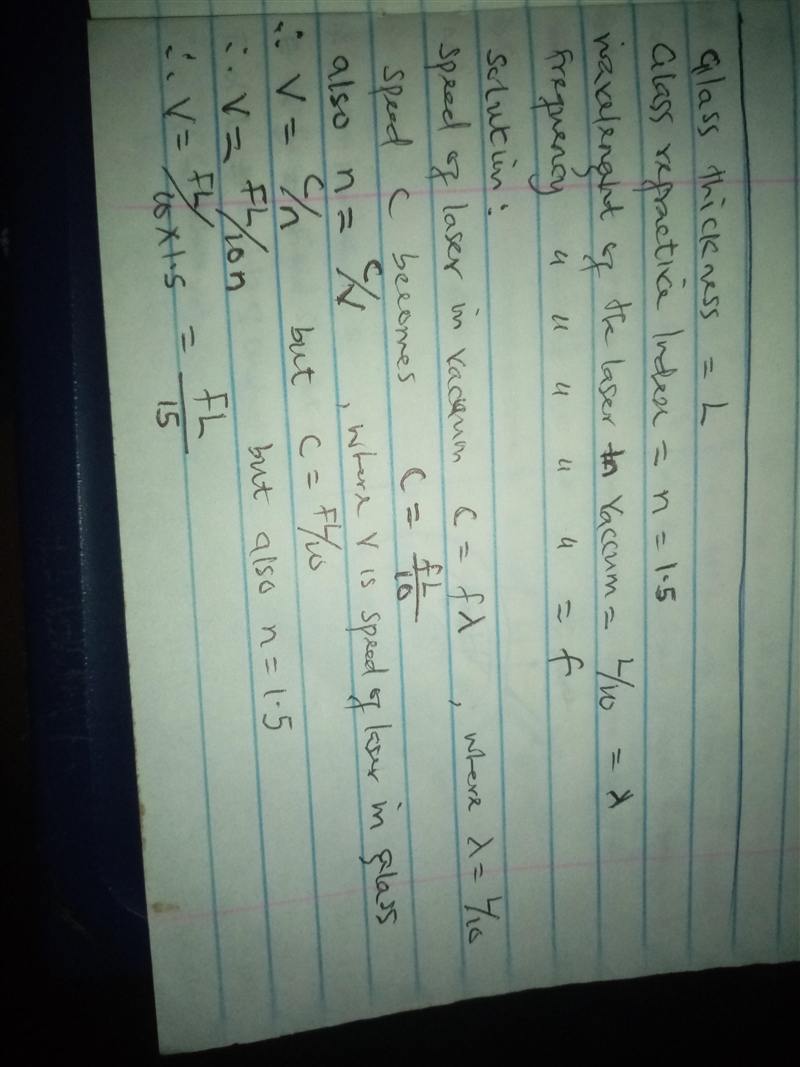 Glass thickness = L
Glass refractive Index = n = 1.5
wavelenght of the laser in vaccum = L/10 = λ
frequency " " " " " = f
Solution:
Speed of laser in vacuum C = fλ , where λ = L/10
Speed C becomes C = fL/10
also n = C/V , where V is speed of laser in glass
∴ V = C/n but C = fL/10
∴ V = fL/10n but also n = 1.5
∴ V = fL/10×1.5 = fL/15